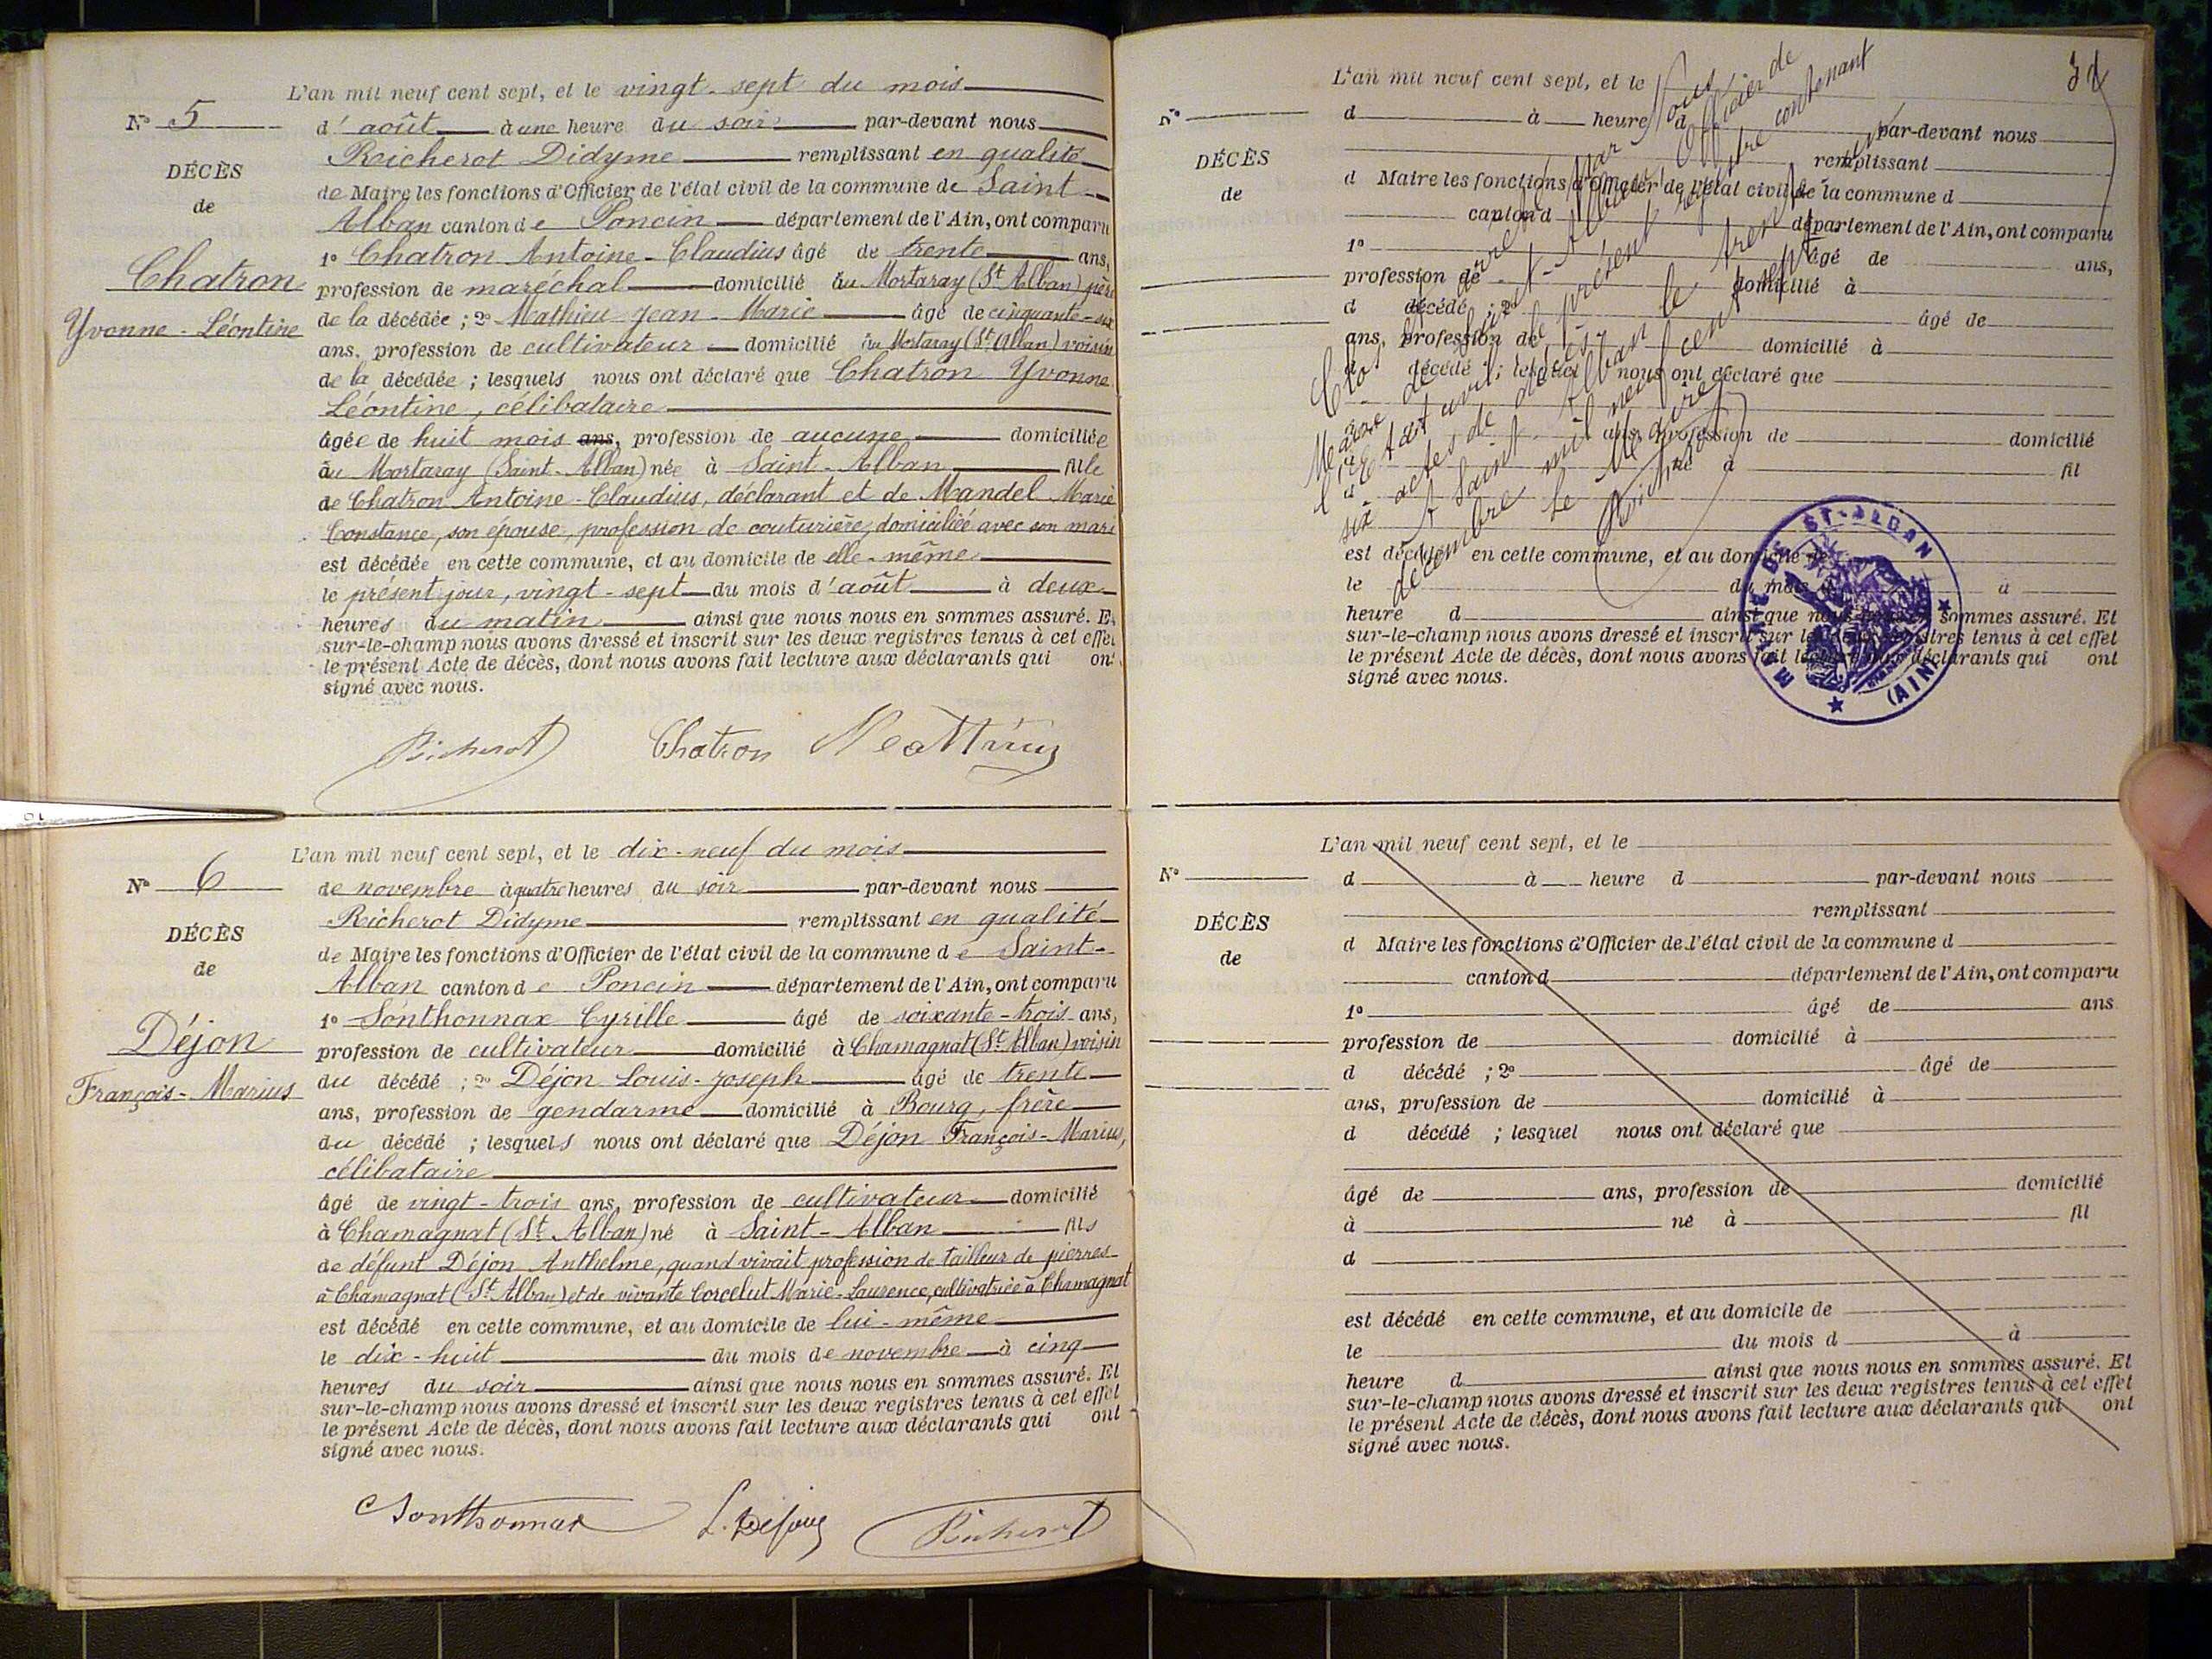 L'an mil neuf cent sept, et le vingt-sept du mois
N° 5
d'août à une heure du soir par-devant nous
DÉCÈS
de
Chatron
Yvonne-Léontine
Richerot Didyme remplissant en qualité
de Maire les fonctions d'Officier de l'état civil de la commune de Saint-
Alban canton de Poncin département de l'Ain, ont comparu
1° Chatron Antoine-Claudius âgé de trente ans,
profession de maréchal domicilié au Mortaray (St Alban) père
de la décédée ; 2° Mathieu Jean-Marie âgé de cinquante-six
ans, profession de cultivateur domicilié au Mortaray (St Alban) voisin
de la décédée ; lesquels nous ont déclaré que Chatron Yvonne
Léontine, célibataire
âgée de huit mois ans, profession de aucune domiciliée
au Mortaray (Saint-Alban) née à Saint-Alban fille
de Chatron Antoine-Claudius, déclarant et de Mandel Marie
Constance, son épouse, profession de couturière, domiciliée avec son mari
est décédée en cette commune, et au domicile de elle-même
le présent jour, vingt-sept du mois d'août à deux
heures du matin ainsi que nous nous en sommes assuré. Et
sur-le-champ nous avons dressé et inscrit sur les deux registres tenus à cet effet
le présent Acte de décès, dont nous avons fait lecture aux déclarants qui ont
signé avec nous.
Richerot Chatron Mathieu
L'an mil neuf cent sept, et le dix-neuf du mois
N° 6
de novembre à quatre heures du soir par-devant nous
DÉCÈS
de
Déjon
François-Marius
Richerot Didyme remplissant en qualité
de Maire les fonctions d'Officier de l'état civil de la commune de Saint-
Alban canton de Poncin département de l'Ain, ont comparu
1° Sonthonnax Cyrille âgé de soixante-trois ans,
profession de cultivateur domicilié à Chamagnat (St Alban) voisin
du décédé ; 2° Déjon Louis-Joseph âgé de trente
ans, profession de gendarme domicilié à Bourg, frère
du décédé ; lesquels nous ont déclaré que Déjon François-Marius,
célibataire
âgé de vingt-trois ans, profession de cultivateur domicilié
à Chamagnat (St Alban) né à Saint-Alban fils
de défunt Déjon Anthelme, quand vivait profession de tailleur de pierres
à Chamagnat (St Alban) et de vivante Corcelut Marie-Laurence, cultivatrice à Chamagnat
est décédé en cette commune, et au domicile de lui-même
le dix-huit du mois de novembre à cinq
heures du soir ainsi que nous nous en sommes assuré. Et
sur-le-champ nous avons dressé et inscrit sur les deux registres tenus à cet effet
le présent Acte de décès, dont nous avons fait lecture aux déclarants qui ont
signé avec nous.
Sonthonnax L. Déjon Richerot
L'an mil neuf cent sept, et le
N°
d à heure d par-devant nous
DÉCÈS
de
remplissant
d Maire les fonctions d'Officier de l'état civil de la commune d
canton d département de l'Ain, ont comparu
1° âgé de ans,
profession de domicilié à
d décédé ; 2° âgé de
ans, profession de domicilié à
d décédé ; lesquel nous ont déclaré que
ans, profession de domicilié
né à fil
est décédé en cette commune, et au domicile de
le du mois d à
heure d ainsi que nous nous en sommes assuré. Et
sur-le-champ nous avons dressé et inscrit sur les deux registres tenus à cet effet
le présent Acte de décès, dont nous avons fait lecture aux déclarants qui ont
signé avec nous.
Clos et arrêté par Nous
Maire de Saint-Alban, Officier de
l'Etat civil, le présent registre contenant
six actes de décès.
A Saint-Alban le trente un
décembre mil neuf cent sept
Le Maire,
Richerot
MAIRIE DE ST-ALBAN
(AIN)
L'an mil neuf cent sept, et le
N°
d à heure d par-devant nous
DÉCÈS
de
remplissant
d Maire les fonctions d'Officier de l'état civil de la commune d
canton d département de l'Ain, ont comparu
1° âgé de ans
profession de domicilié à
d décédé ; 2° âgé de
ans, profession de domicilié à
d décédé ; lesquel nous ont déclaré que
âgé de ans, profession de domicilié
à né à fil
d
est décédé en cette commune, et au domicile de
le du mois d à
heure d ainsi que nous nous en sommes assuré. Et
sur-le-champ nous avons dressé et inscrit sur les deux registres tenus à cet effet
le présent Acte de décès, dont nous avons fait lecture aux déclarants qui ont
signé avec nous.